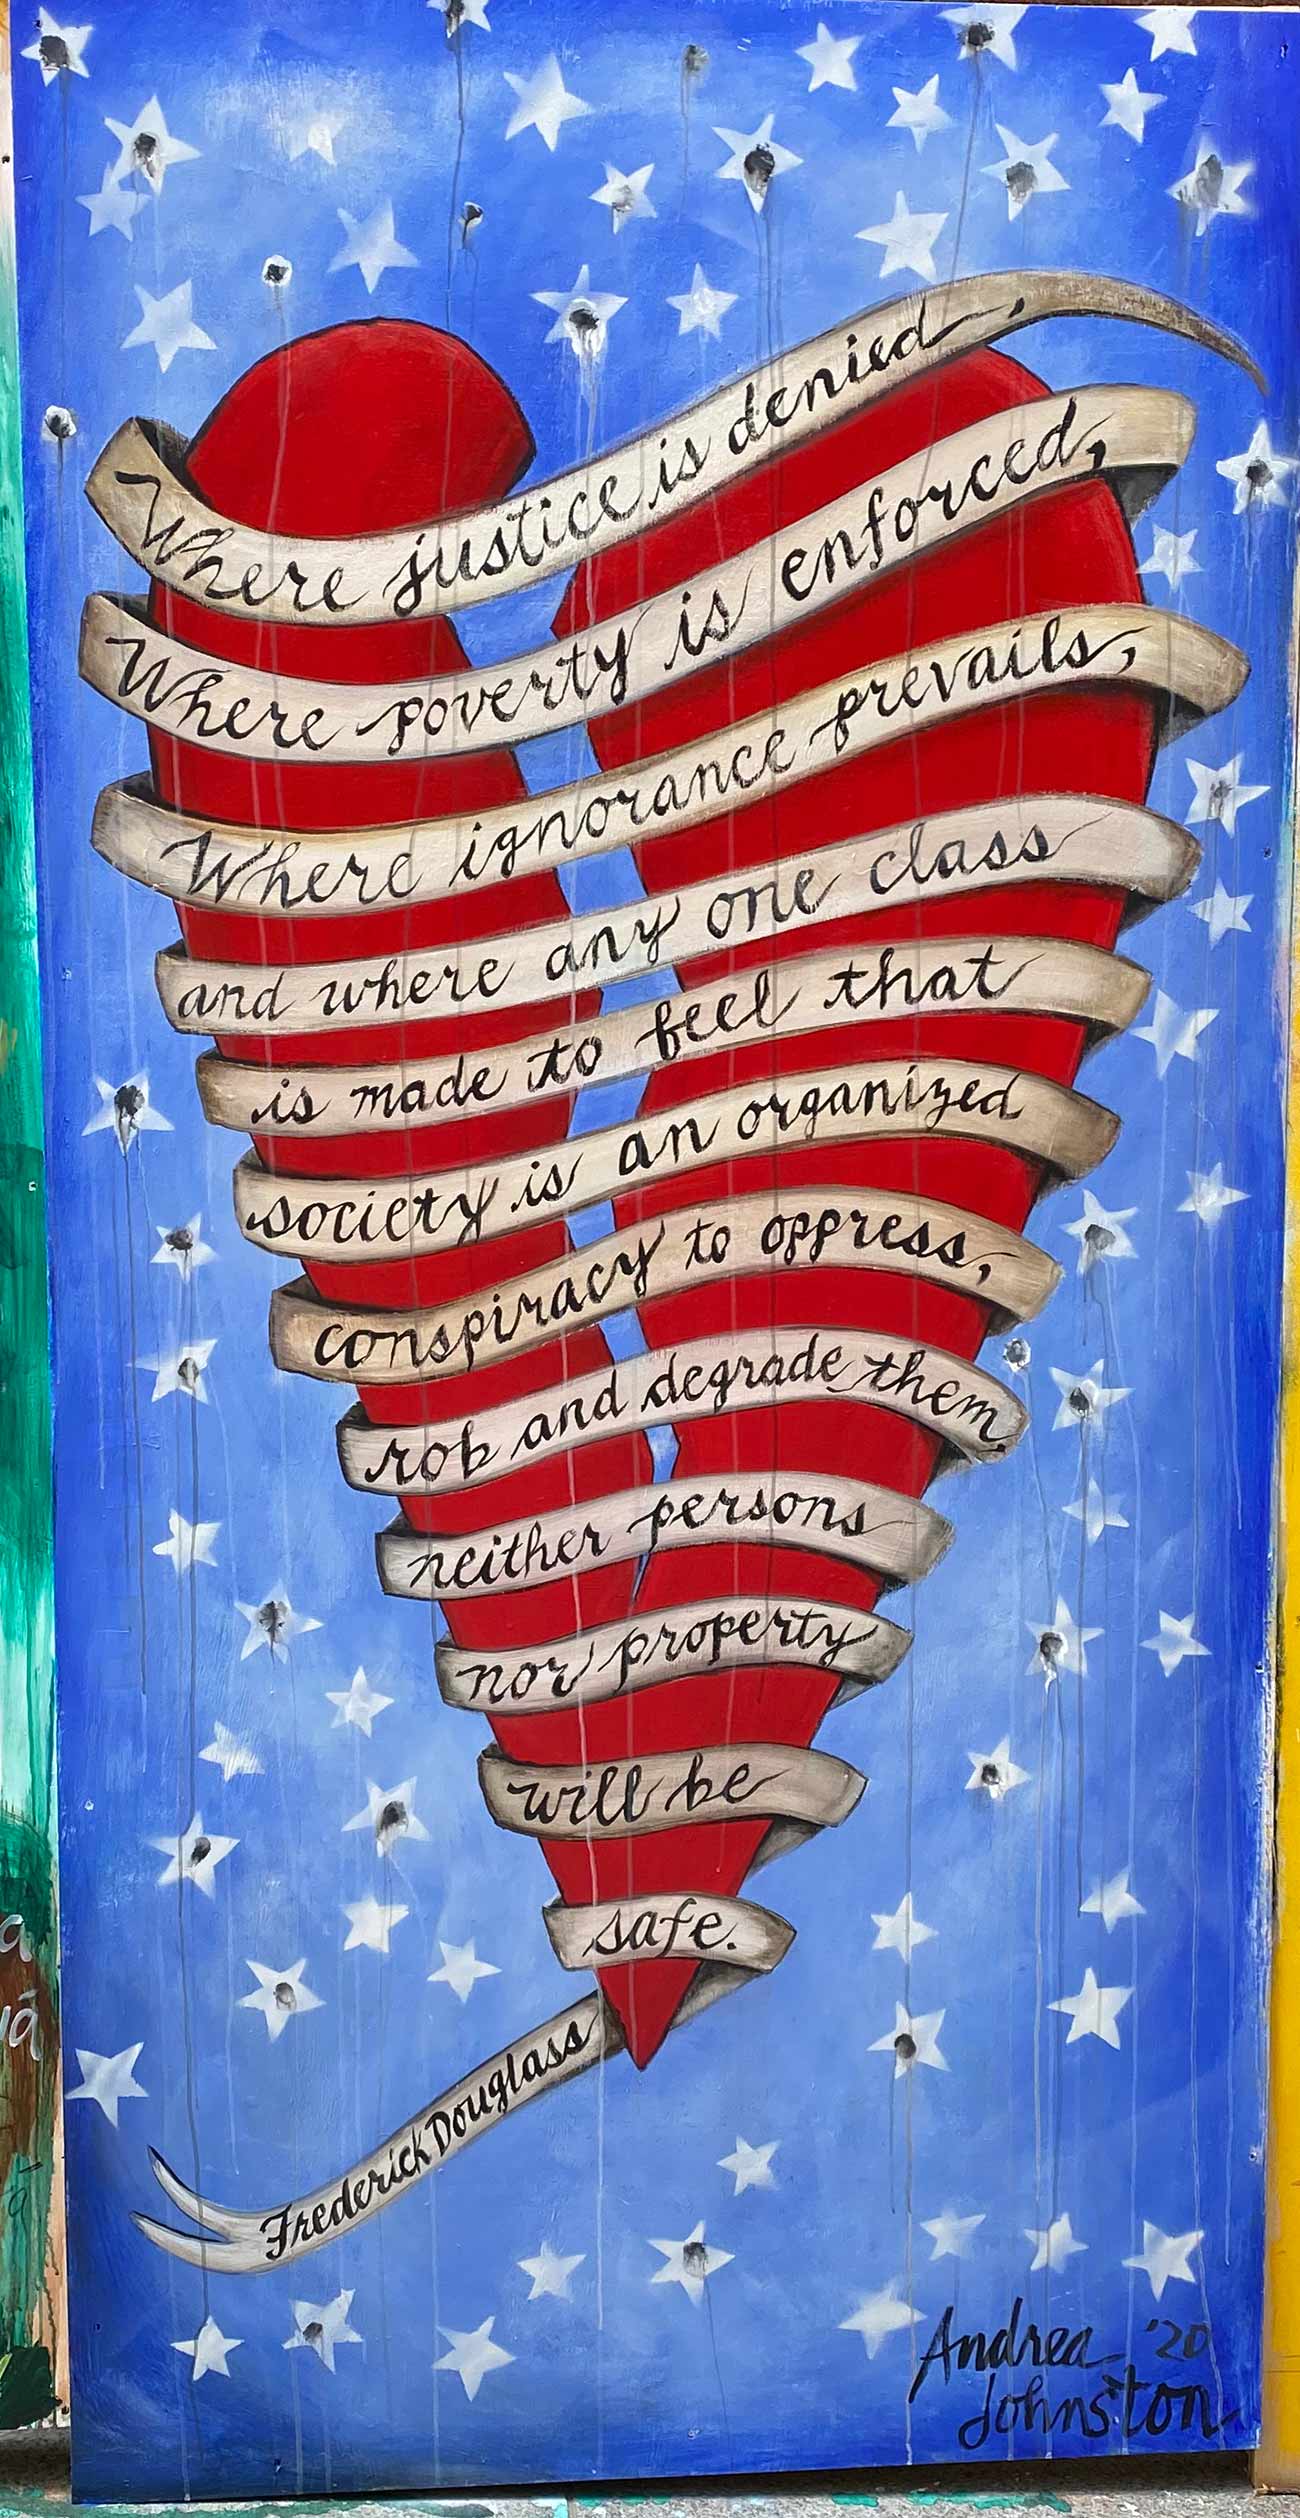 Where justice is denied,
Where poverty is enforced,
Where ignorance prevails,
and where any one class
is made to feel that
society is an organized
conspiracy to oppress,
rob and degrade them,
neither persons
nor property
will be
safe.
Frederick Douglass
Andrea '20
Johnston